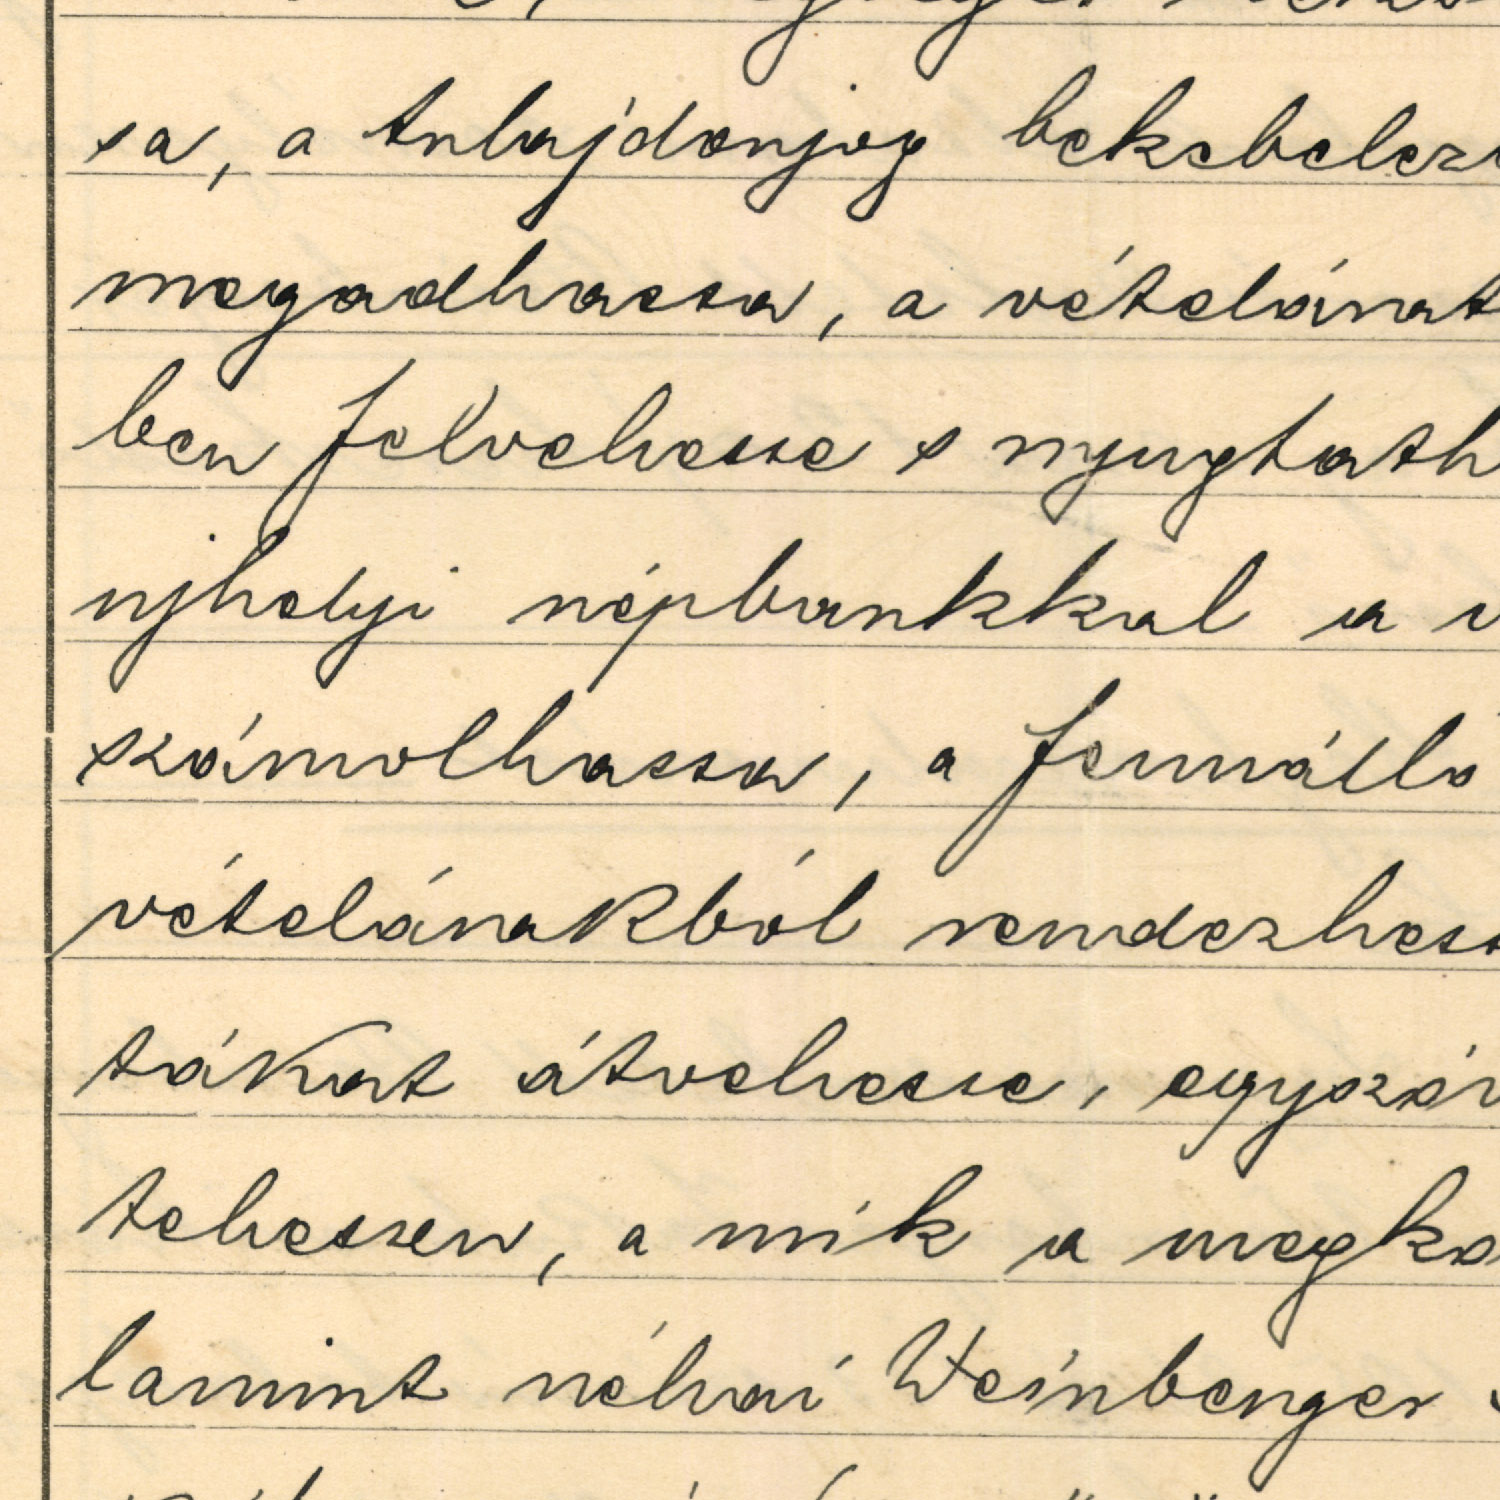 sa, a tulajdonjog bekebelezé
megadhassa, a vételárat
ben felvehesse s nyugtath
ujhelyi népbankkal a v
számolhassa, a fennálló
vételárakból rendezhess
tákat átvehesse, egyszó
tehessen, a mik a megka
lamint néhai Weinberger